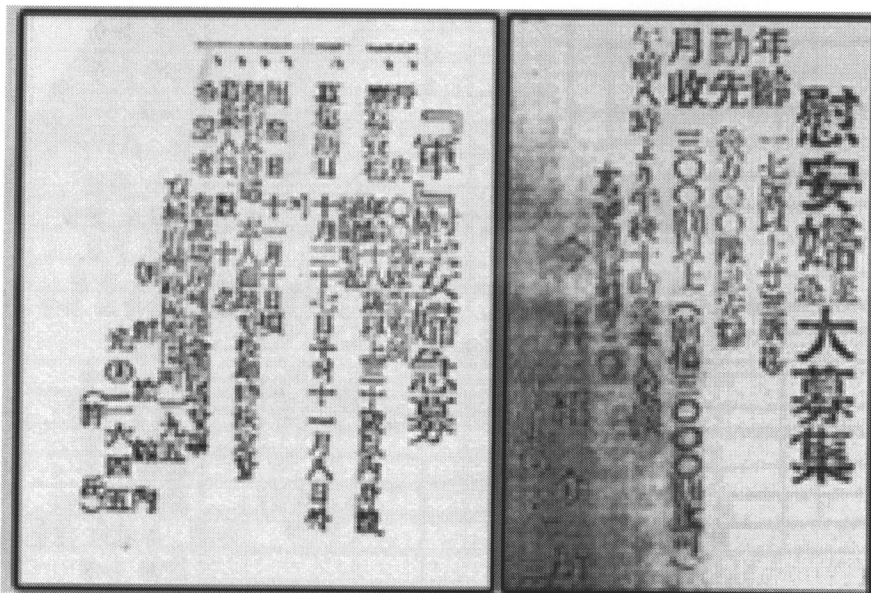 慰安婦至急大募集
年齢 一七歳以上廿三歳迄
勤先 後方〇〇隊慰安部
月収 三〇〇圓以上（前借三〇〇〇圓迄可）
午前八時より午後十時迄本人来談
今井紹介所
『軍』慰安婦急募
一、行先 〇〇部隊慰安所
一、應募資格 年齢十八歳以上三十歳以内身體強健
一、募集期日 十月二十七日부터十一月八日까
지
一、出發日 十一月十日頃
一、契約及待遇 本人面談
一、募集人員 数十名
一、希望者
朝鮮旅館内
光③二六四五